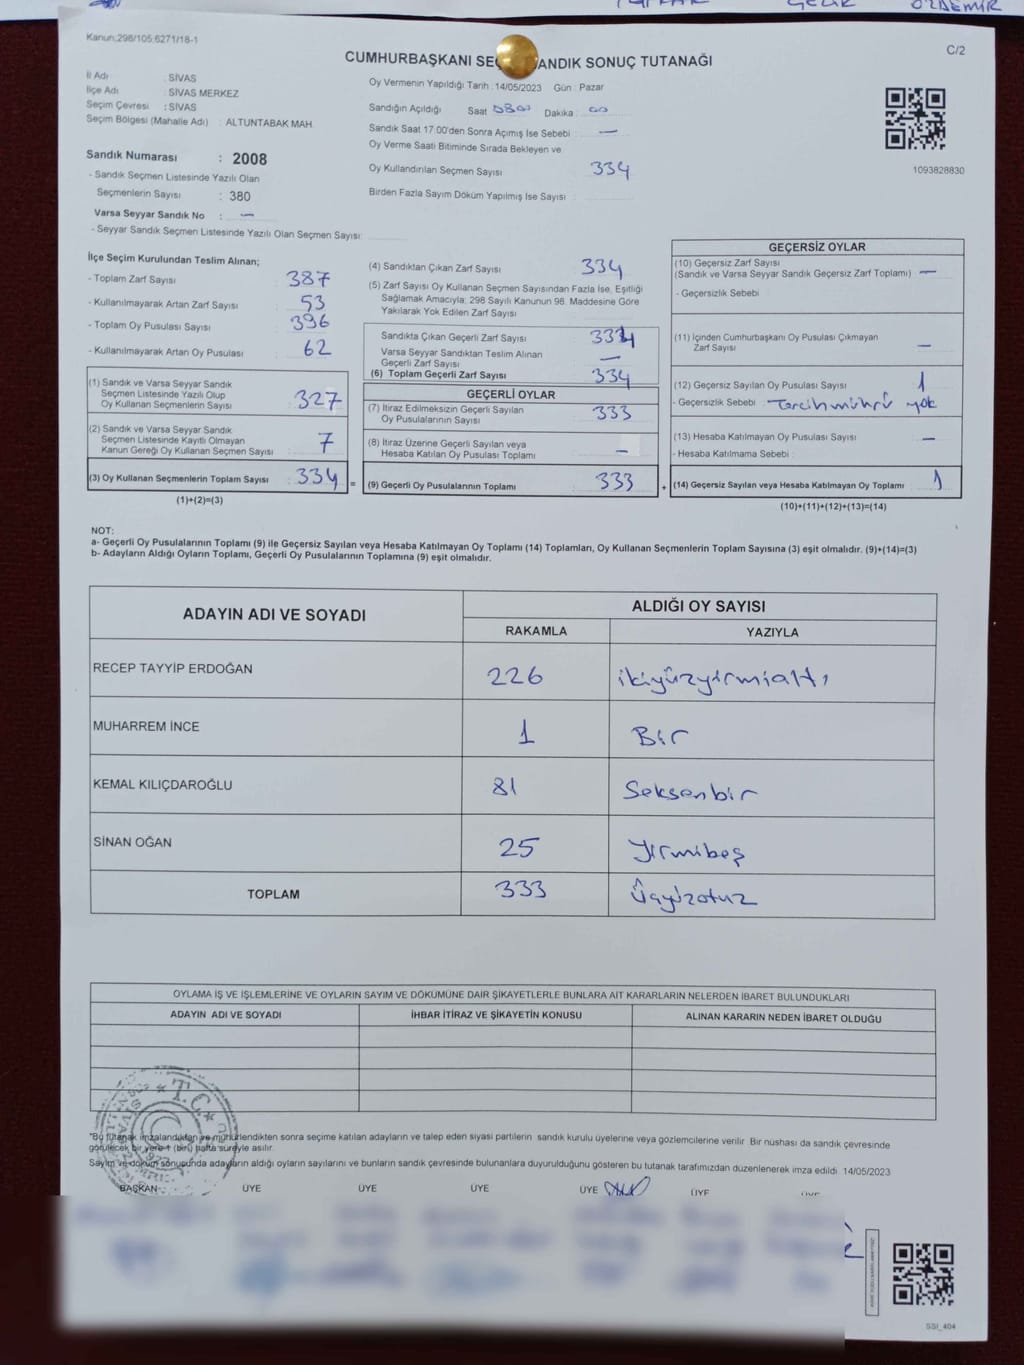 Kanun:298/105;6271/18-1
C/2
CUMHURBAŞKANI SEÇ ANDIK SONUÇ TUTANAĞI
İl Adı : SİVAS
İlçe Adı : SİVAS MERKEZ
Seçim Çevresi : SİVAS
Seçim Bölgesi (Mahalle Adı) : ALTUNTABAK MAH.
Sandık Numarası : 2008
- Sandık Seçmen Listesinde Yazılı Olan
Seçmenlerin Sayısı : 380
Varsa Seyyar Sandık No : —
- Seyyar Sandık Seçmen Listesinde Yazılı Olan Seçmen Sayısı:
Oy Vermenin Yapıldığı Tarih : 14/05/2023 Gün : Pazar
Sandığın Açıldığı Saat 0800 Dakika : 00
Sandık Saat 17:00'den Sonra Açımış İse Sebebi : —
Oy Verme Saati Bitiminde Sırada Bekleyen ve
Oy Kullandırılan Seçmen Sayısı : 334
Birden Fazla Sayım Döküm Yapılmış İse Sayısı :
1093828830
İlçe Seçim Kurulundan Teslim Alınan;
- Toplam Zarf Sayısı : 387
- Kullanılmayarak Artan Zarf Sayısı : 53
- Toplam Oy Pusulası Sayısı : 396
- Kullanılmayarak Artan Oy Pusulası : 62
(1) Sandık ve Varsa Seyyar Sandık
Seçmen Listesinde Yazılı Olup
Oy Kullanan Seçmenlerin Sayısı : 327
(2) Sandık ve Varsa Seyyar Sandık
Seçmen Listesinde Kayıtlı Olmayan
Kanun Gereği Oy Kullanan Seçmen Sayısı : 7
(3) Oy Kullanan Seçmenlerin Toplam Sayısı : 334 =
(1)+(2)=(3)
(4) Sandıktan Çıkan Zarf Sayısı : 334
(5) Zarf Sayısı Oy Kullanan Seçmen Sayısından Fazla İse, Eşitliği
Sağlamak Amacıyla; 298 Sayılı Kanunun 98. Maddesine Göre
Yakılarak Yok Edilen Zarf Sayısı :
Sandıkta Çıkan Geçerli Zarf Sayısı : 334
Varsa Seyyar Sandıktan Teslim Alınan
Geçerli Zarf Sayısı : —
(6) Toplam Geçerli Zarf Sayısı : 334
GEÇERLİ OYLAR
(7) İtiraz Edilmeksizin Geçerli Sayılan
Oy Pusulalarının Sayısı : 333
(8) İtiraz Üzerine Geçerli Sayılan veya
Hesaba Katılan Oy Pusulası Toplamı : —
(9) Geçerli Oy Pusulalarının Toplamı : 333 +
GEÇERSİZ OYLAR
(10) Geçersiz Zarf Sayısı
(Sandık ve Varsa Seyyar Sandık Geçersiz Zarf Toplamı) : —
- Geçersizlik Sebebi :
(11) İçinden Cumhurbaşkanı Oy Pusulası Çıkmayan
Zarf Sayısı : —
(12) Geçersiz Sayılan Oy Pusulası Sayısı : 1
- Geçersizlik Sebebi : Tercih mührü yok
(13) Hesaba Katılmayan Oy Pusulası Sayısı : —
- Hesaba Katılmama Sebebi :
(14) Geçersiz Sayılan veya Hesaba Katılmayan Oy Toplamı : 1
(10)+(11)+(12)+(13)=(14)
NOT:
a- Geçerli Oy Pusulalarının Toplamı (9) ile Geçersiz Sayılan veya Hesaba Katılmayan Oy Toplamı (14) Toplamları, Oy Kullanan Seçmenlerin Toplam Sayısına (3) eşit olmalıdır. (9)+(14)=(3)
b- Adayların Aldığı Oyların Toplamı, Geçerli Oy Pusulalarının Toplamına (9) eşit olmalıdır.
ADAYIN ADI VE SOYADI ALDIĞI OY SAYISI
RAKAMLA YAZIYLA
RECEP TAYYİP ERDOĞAN 226 ikiyüzyirmialtı
MUHARREM İNCE 1 Bir
KEMAL KILIÇDAROĞLU 81 Seksenbir
SİNAN OĞAN 25 Yirmibeş
TOPLAM 333 Üçyüzotuz
OYLAMA İŞ VE İŞLEMLERİNE VE OYLARIN SAYIM VE DÖKÜMÜNE DAİR ŞİKAYETLERLE BUNLARA AİT KARARLARIN NELERDEN İBARET BULUNDUKLARI
ADAYIN ADI VE SOYADI İHBAR İTİRAZ VE ŞİKAYETİN KONUSU ALINAN KARARIN NEDEN İBARET OLDUĞU
T.C.
*Bu tutanak imzalandıktan ve mühürlendikten sonra seçime katılan adayların ve talep eden siyasi partilerin sandık kurulu üyelerine veya gözlemcilerine verilir. Bir nüshası da sandık çevresinde
görülecek bir yere 1 (bir) hafta süreyle asılır.
Sayım ve döküm sonusunda adayların aldığı oyların sayılarını ve bunların sandık çevresinde bulunanlara duyurulduğunu gösteren bu tutanak tarafımızdan düzenlenerek imza edildi. 14/05/2023
BAŞKAN ÜYE ÜYE ÜYE ÜYE ÜYE ÜYE
SSI_404